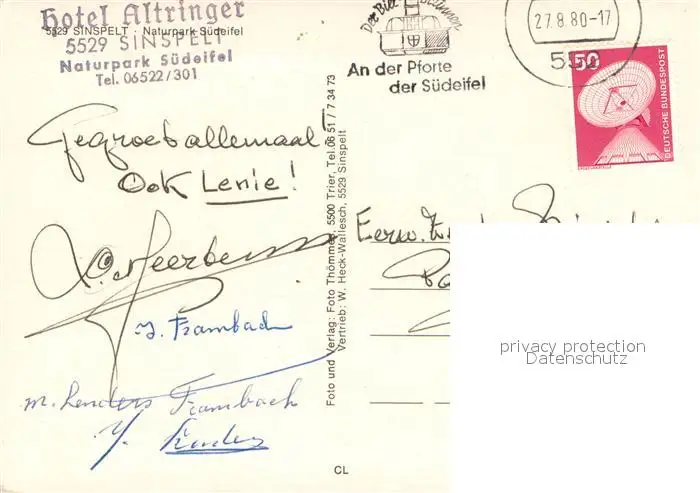 Hotel Altringer
5529 SINSPELT · Naturpark Südeifel
5529 SINSPELT
Naturpark Südeifel
Tel. 06522/301
Gegroet allemaal!
Ook Lenie!
J. Frambach
M. Lenders Frambach
Y. Lenders
Foto und Verlag: Foto Thömmes, 5500 Trier, Tel. 06 51 / 7 34 73
Vertrieb: W. Heck-Wallesch, 5529 Sinspelt
CL
Der Bier
An der Pforte
der Südeifel
27.8.80-17
50
DEUTSCHE BUNDESPOST
Eerw.
privacy protection
Datenschutz